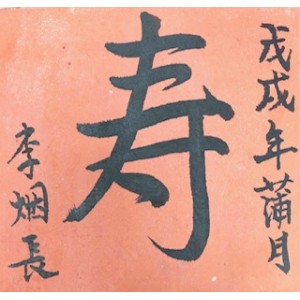 戊戌年蒲月
寿
李烟長